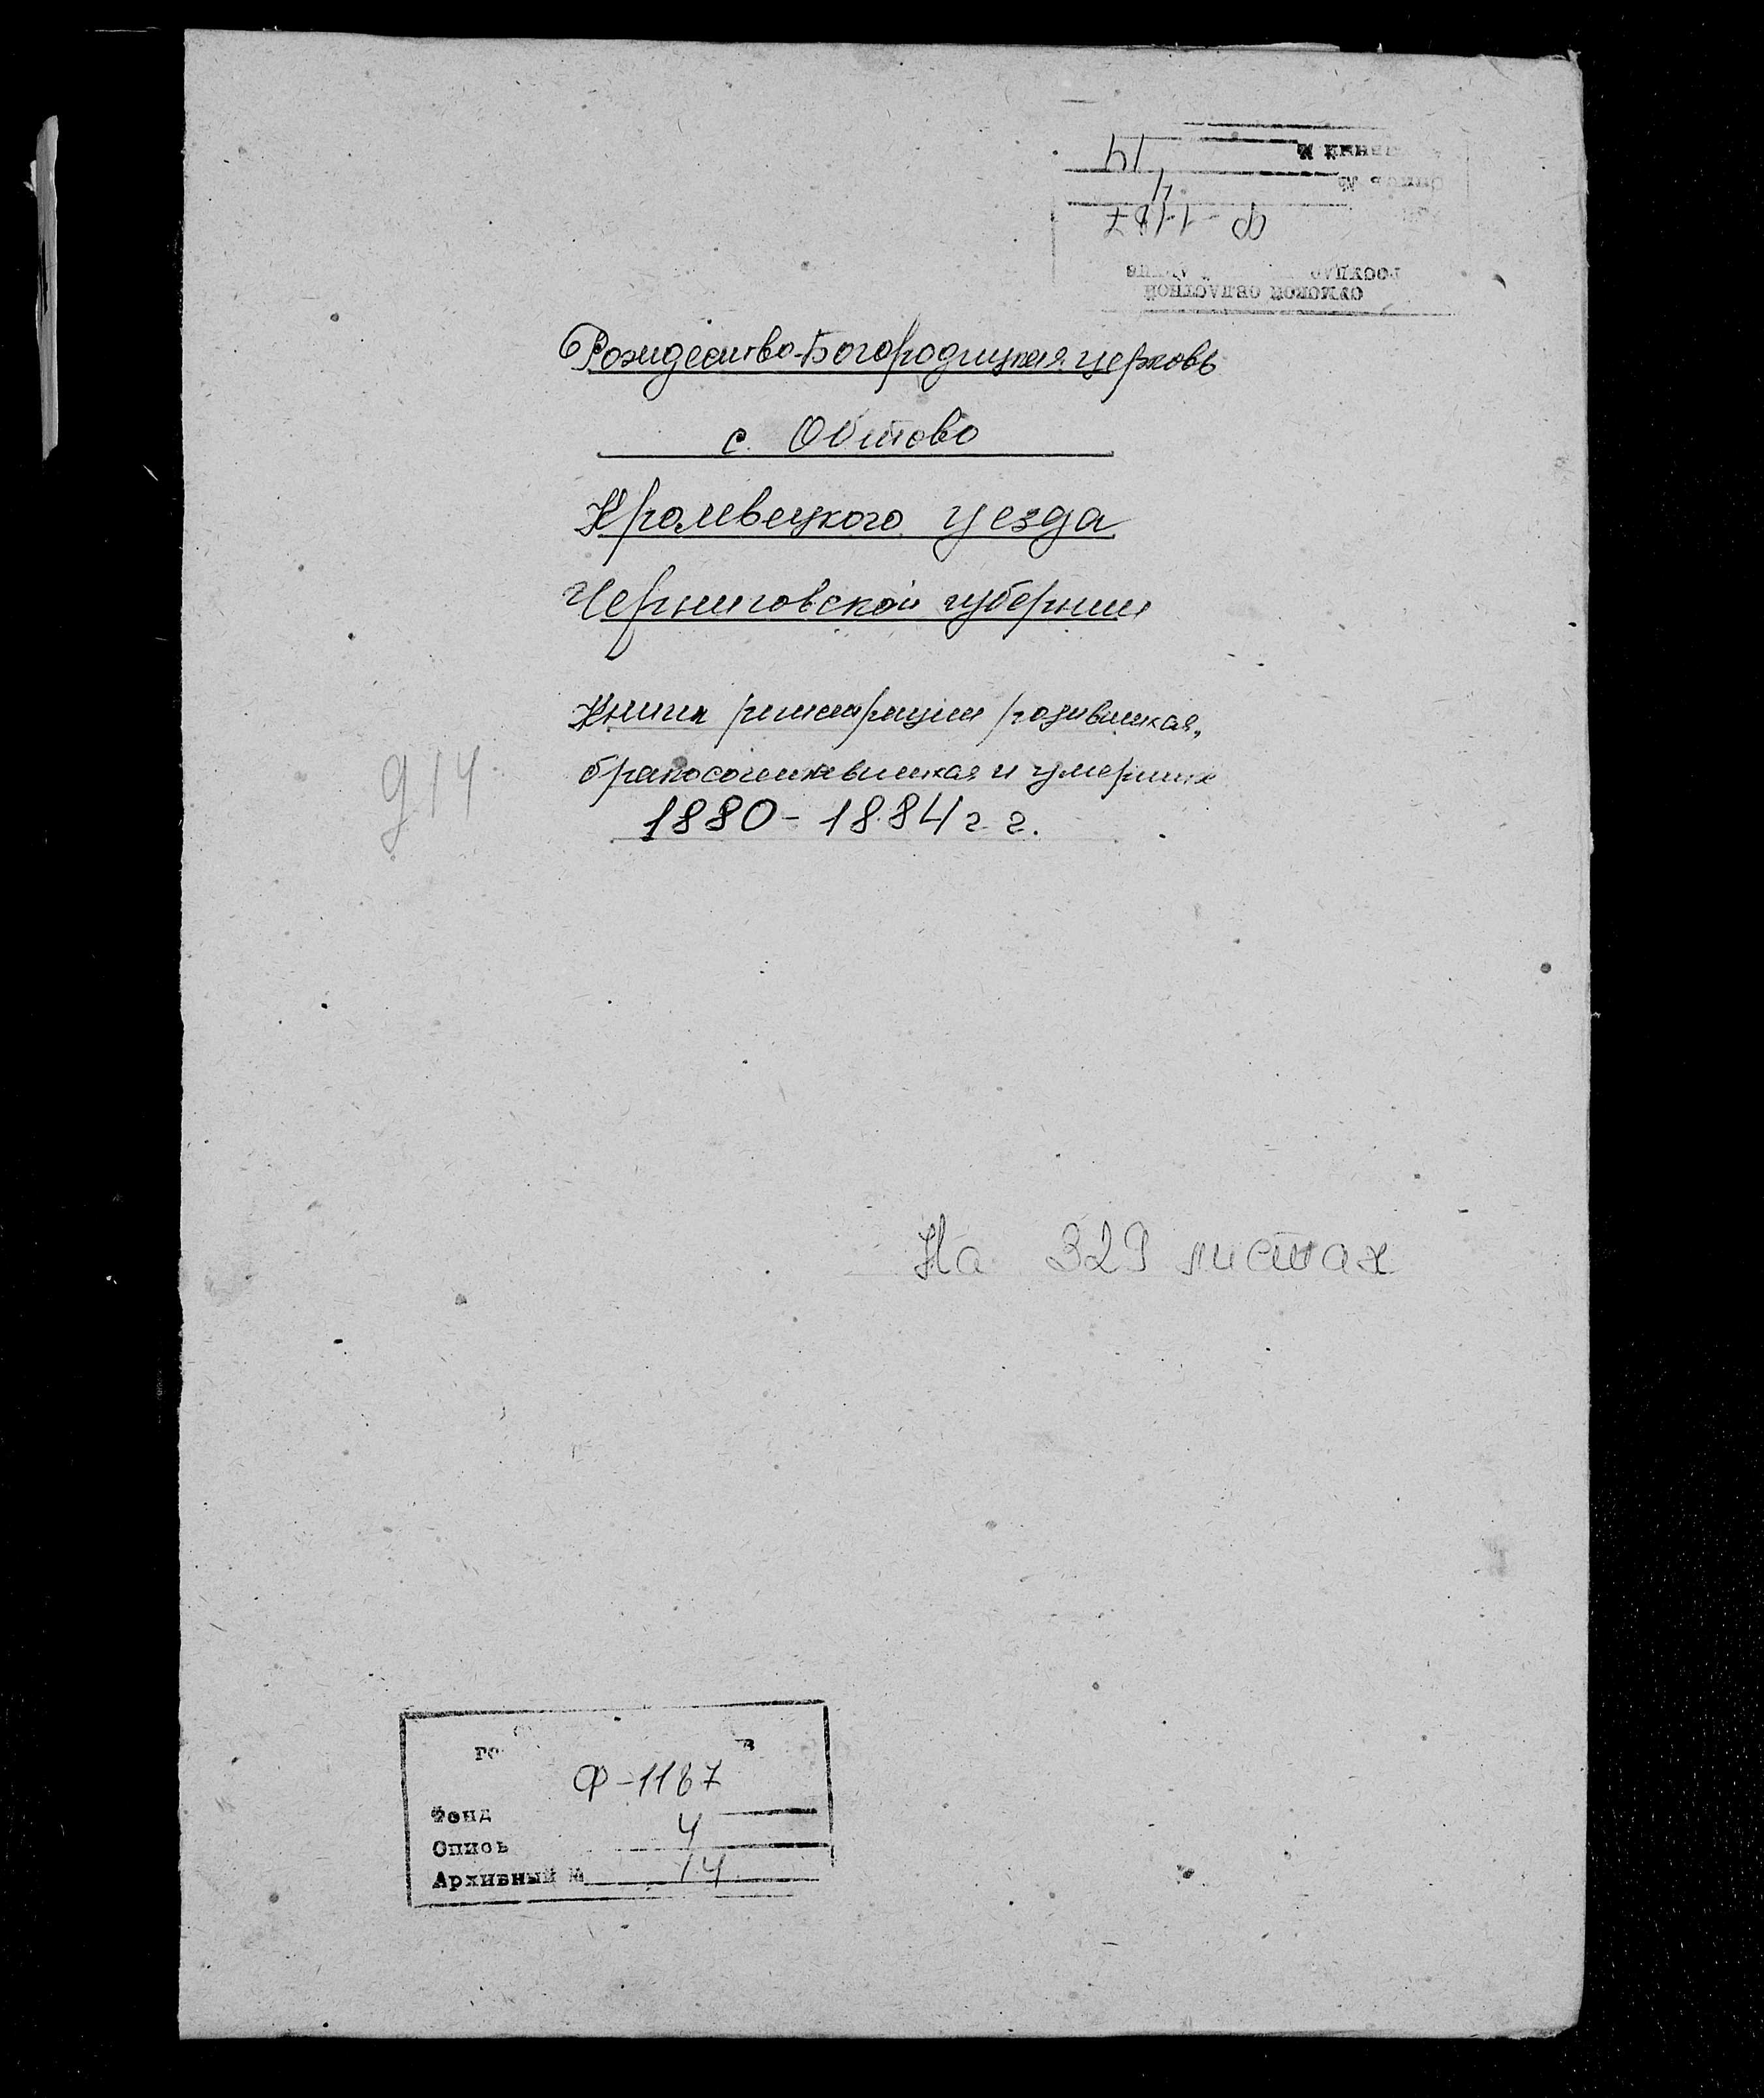 14
Опись №
4
Ф-1187
СУМСКОЙ ОБЛАСТНОЙ
Рождество-Богородицкая церковь
с. Обтово
Кролевецкого уезда
Черниговской губернии
Книга регистрации родившихся,
бракосочетавшихся и умерших
1880-1884 г.г.
914
На 329 листах
Ф-1187
Фонд
Опись 4
Архивный № 14